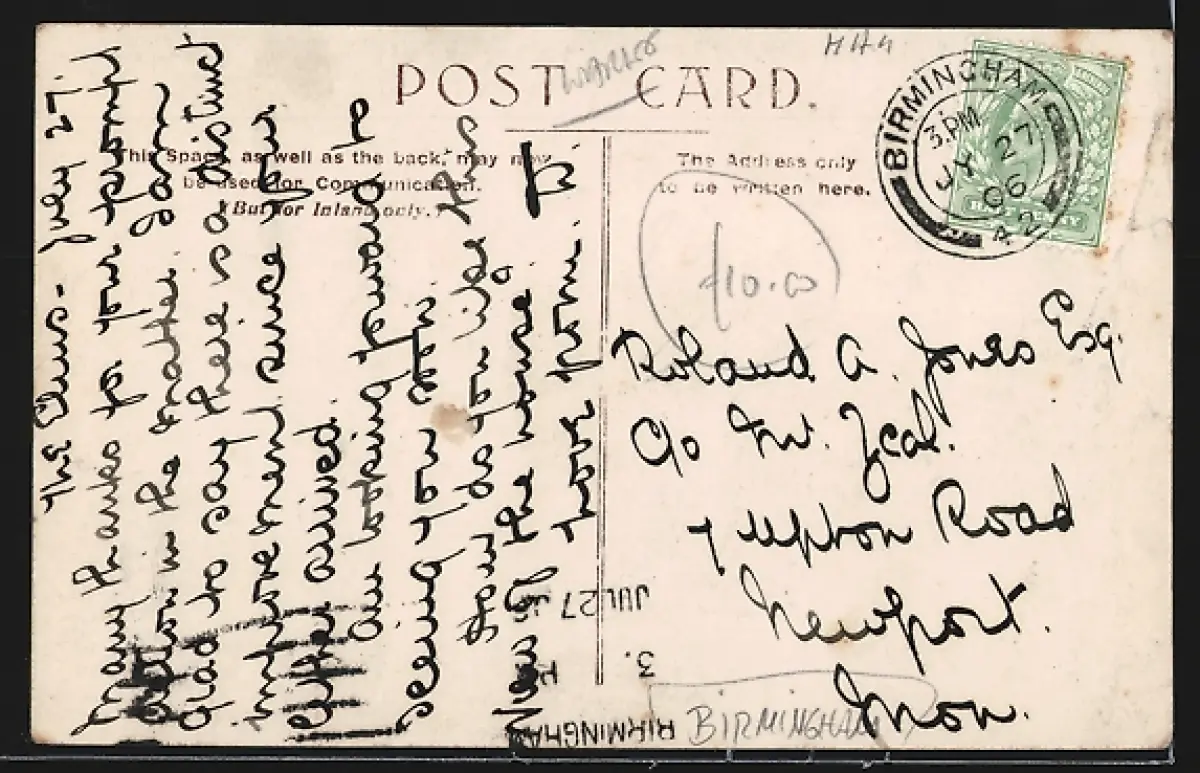 POST CARD.
This Space, as well as the back, may now
be used for Communication.
(But for Inland only.)
The Address only
to be written here.
BIRMINGHAM
3. PM
JY 27
06
42
HALF PENNY
£10.00
The Elms - July 27.
Many thanks for your prompt
action in the matter. I am
glad to say there is a distinct
improvement since your
letter arrived.
Am looking forward to
seeing you soon.
How do you like this
View of the house.
Love from
Roland A. Jones Esq.
c/o Mr. Zeal.
7 Upton Road
Newport.
Mon.
JUL 27
3.
BIRMINGHAM
BIRMINGHAM